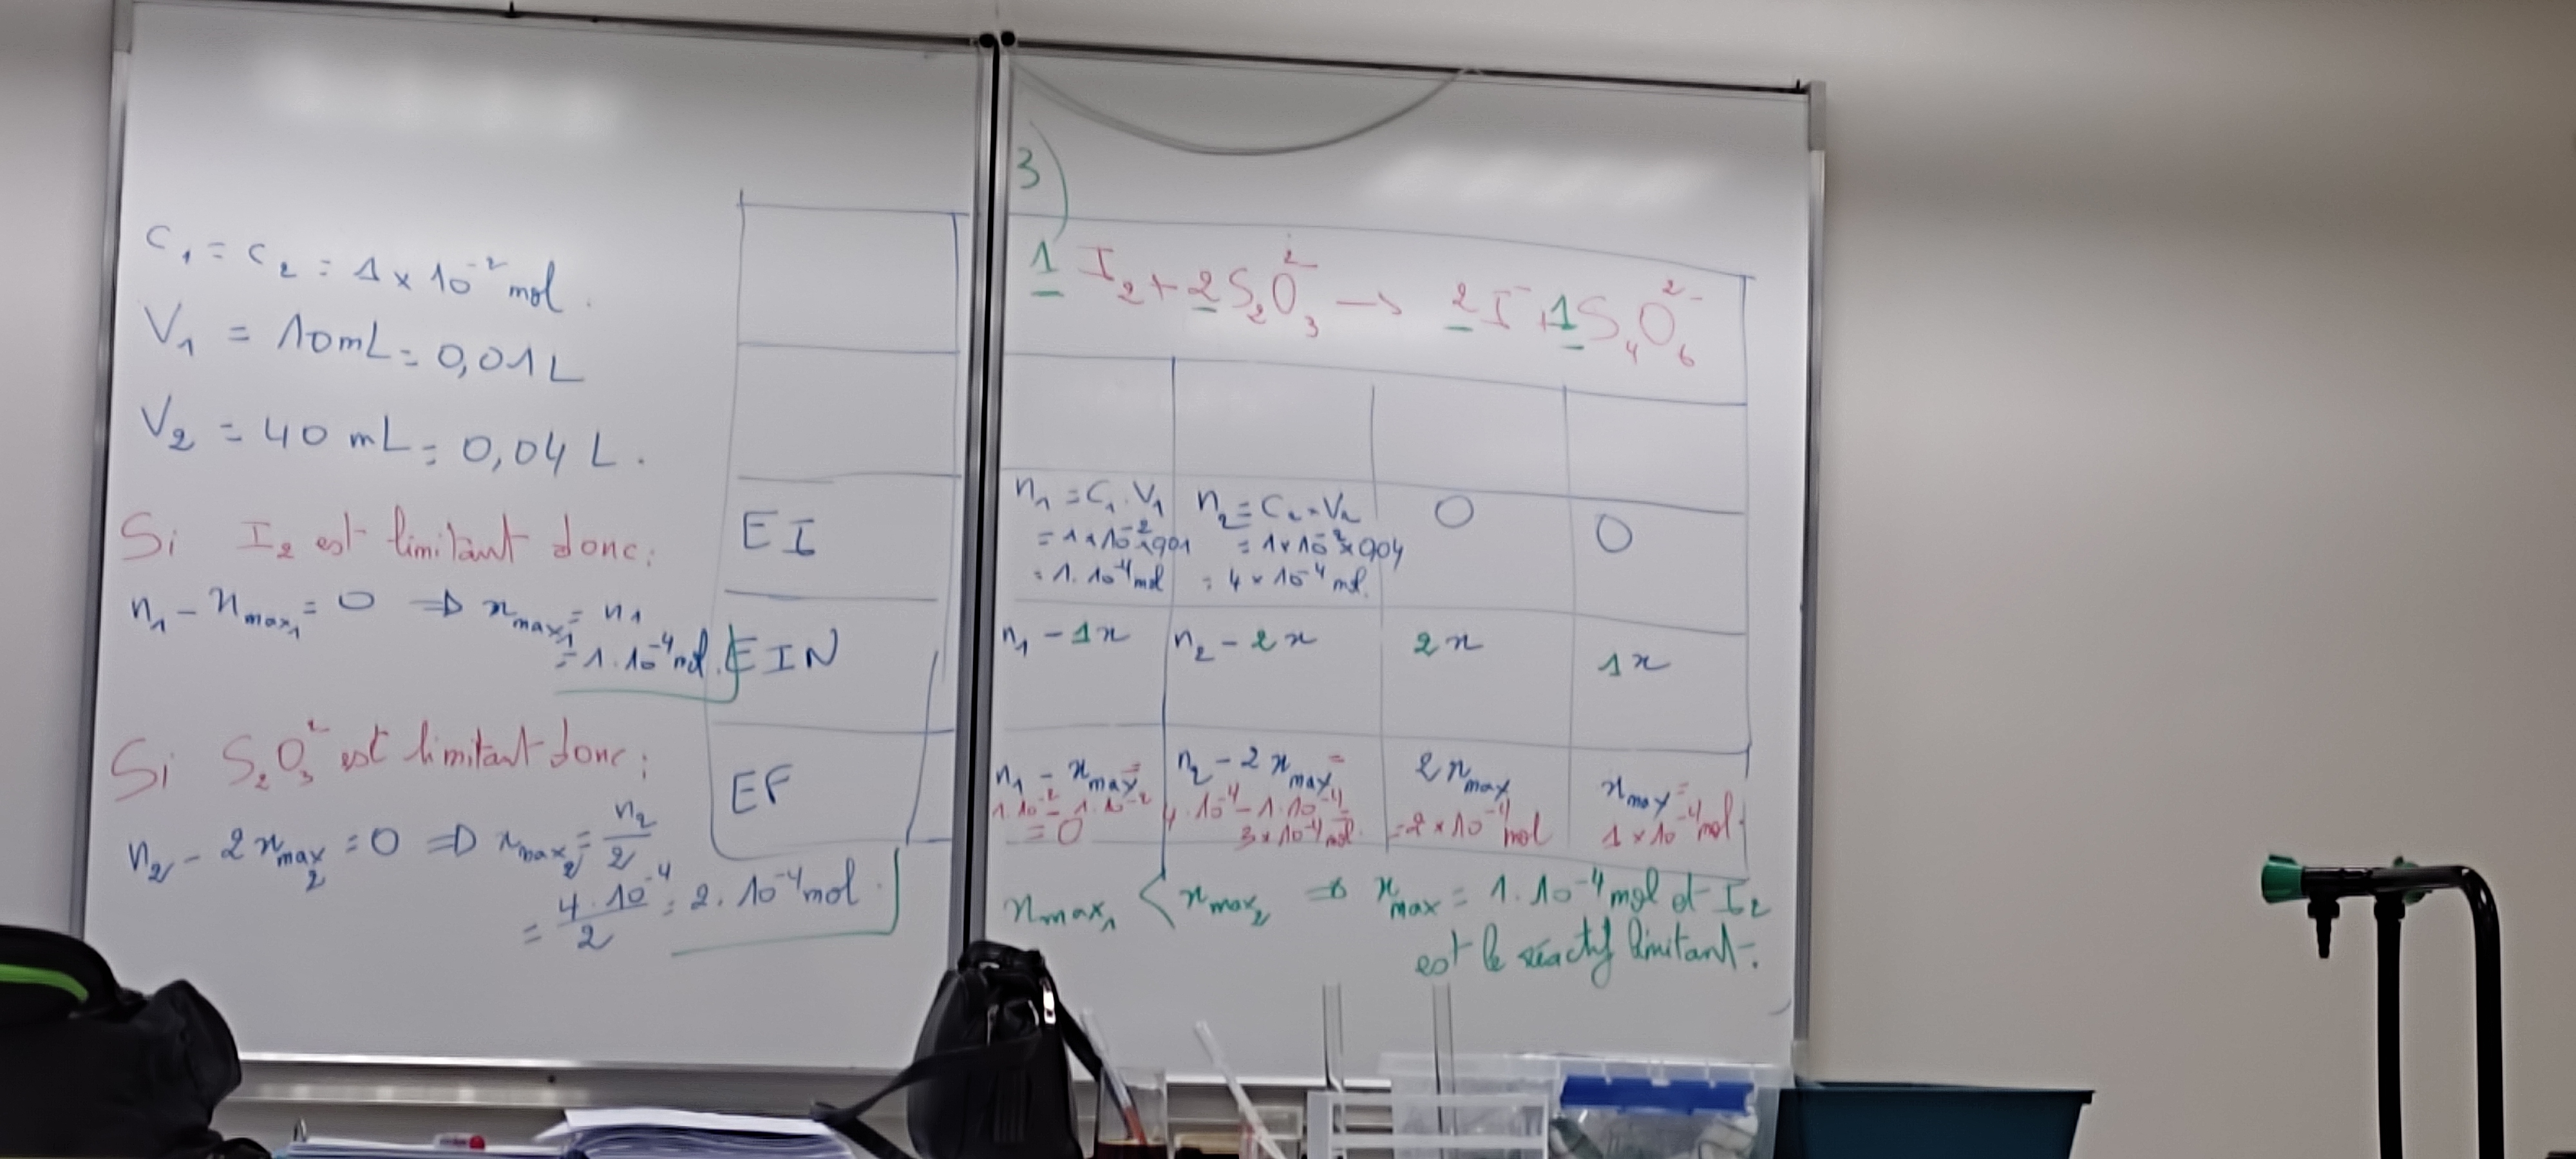 C₁ = C₂ = 1 × 10⁻² mol.
V₁ = 10 mL = 0,01 L
V₂ = 40 mL = 0,04 L.
Si I₂ est limitant donc:
n₁ - x_max₁ = 0 ⇒ x_max₁ = n₁
= 1.10⁻⁴ mol.
Si S₂O₃²⁻ est limitant donc;
n₂ - 2 x_max₂ = 0 ⇒ x_max₂ = n₂/2
= 4.10⁻⁴/2 = 2.10⁻⁴ mol.
3)
1 I₂ + 2 S₂O₃²⁻ → 2 I⁻ + 1 S₄O₆²⁻
EI
n₁ = C₁.V₁
= 1×10⁻²×0,01
= 1.10⁻⁴ mol
n₂ = C₂.V₂
= 1×10⁻²×0,04
= 4×10⁻⁴ mol.
0
0
EIN
n₁ - 1x
n₂ - 2x
2x
1x
EF
n₁ - x_max =
1.10⁻² - 1.10⁻²
= 0
n₂ - 2 x_max =
4.10⁻⁴ - 1.10⁻⁴ =
3×10⁻⁴ mol.
2 x_max
= 2×10⁻⁴ mol
x_max =
1×10⁻⁴ mol.
x_max₁ < x_max₂ ⇒ x_max = 1.10⁻⁴ mol et I₂
est le réactif limitant.